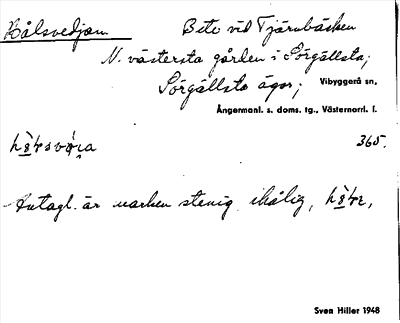 Hålsvedjan Bete vid Tjärnbäcken
N. västersta gården i Sörgällsta;
Sörgällsta ägor; Vibyggerå sn,
Ångermanl. s. doms. tg., Västernorrl. l.
365.
Antagl. är marken stenig ihålig,
Sven Hiller 1948